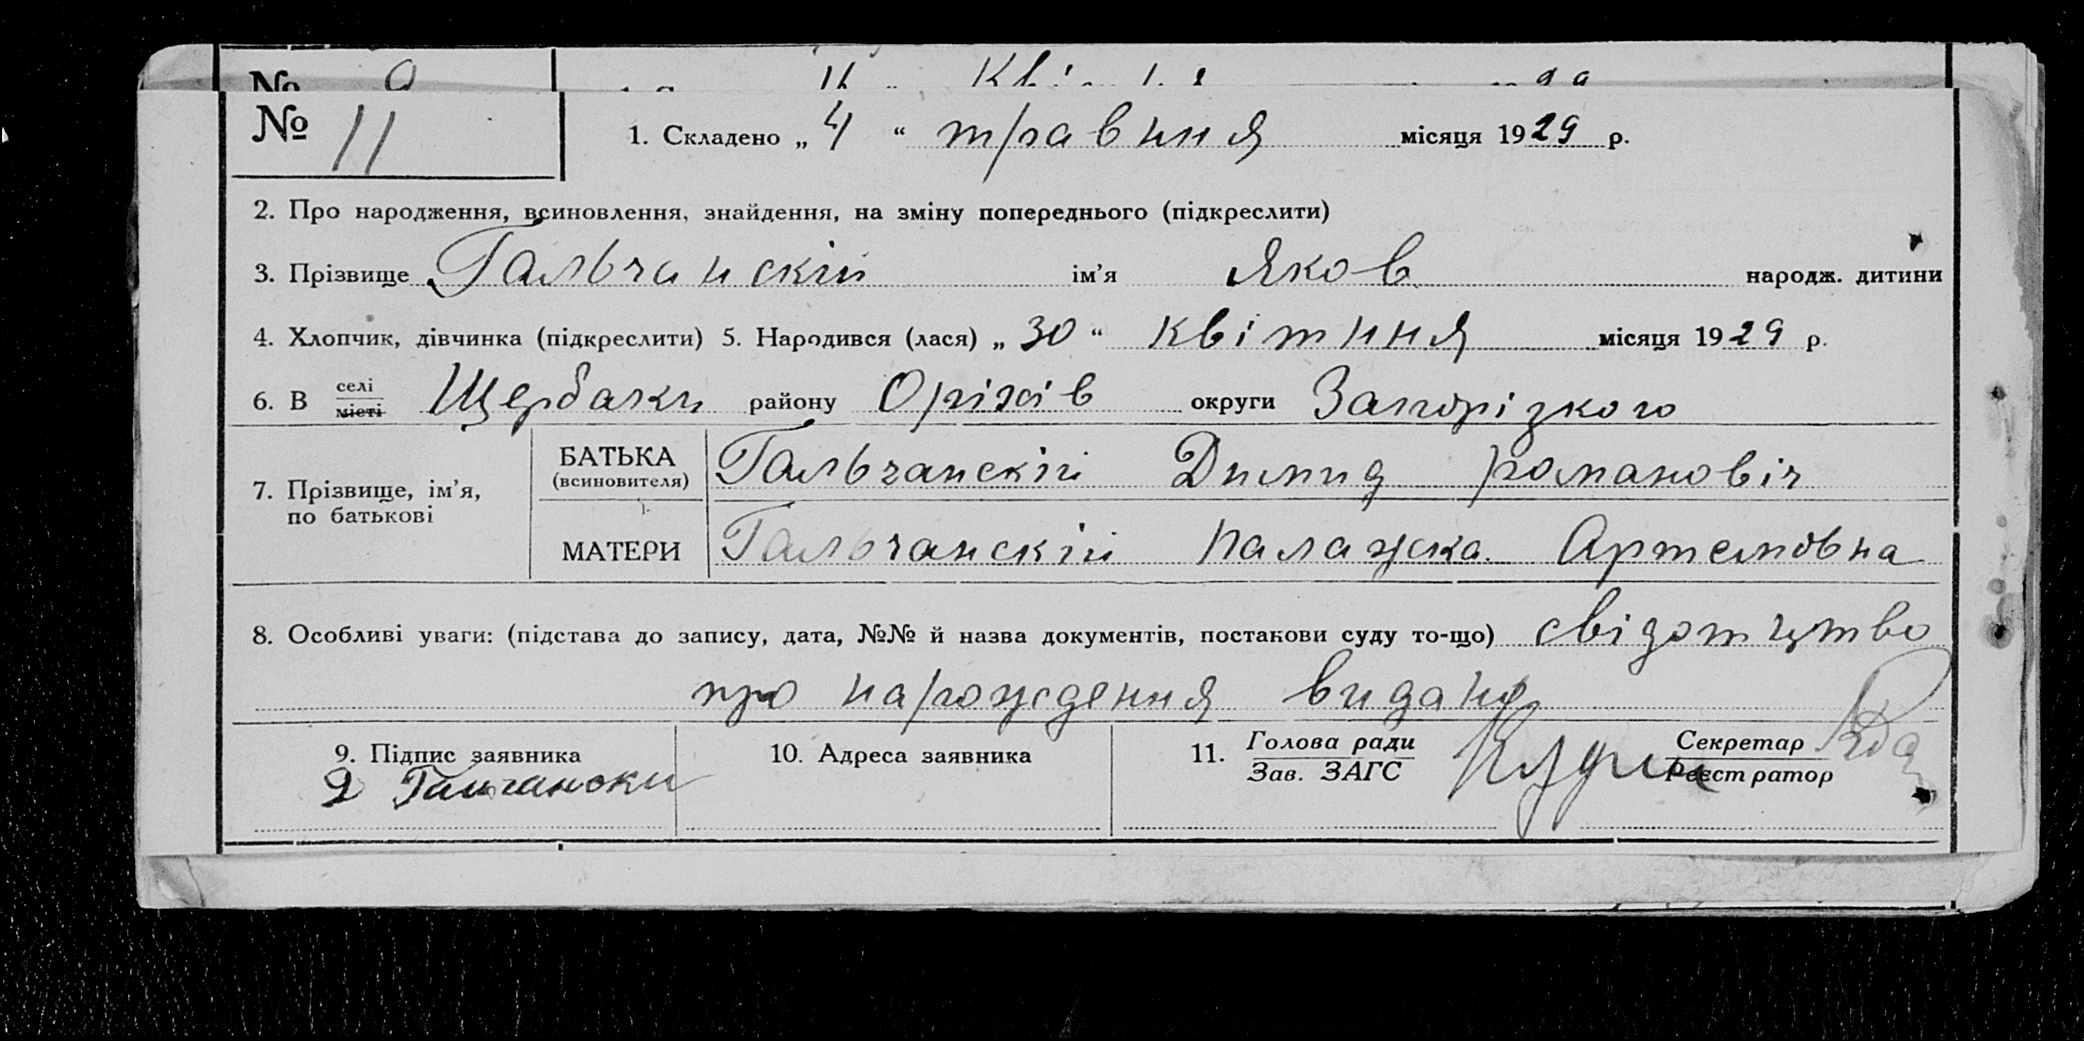 № 11
1. Складено „ 4 “ травння місяця 1929 р.
2. Про народження, всиновлення, знайдення, на зміну попереднього (підкреслити)
3. Прізвище Гальчанскій ім’я Яков народж. дитини
4. Хлопчик, дівчинка (підкреслити) 5. Народився (лася) „ 30 “ квітння місяця 1929 р.
6. В селі місті Щербаки району Оріхів округи Запорізкого
7. Прізвище, ім’я, по батькові
БАТЬКА (всиновителя) Гальчанскій Димид романовіч
МАТЕРИ Гальчанскій палажка Артемовна
8. Особливі уваги: (підстава до запису, дата, №№ й назва документів, постанови суду то-що) свідотцтво
про нарождення видано
9. Підпис заявника
10. Адреса заявника
11. Голова ради
Зав. ЗАГС
Секретар
Реєстратор
Д Галчански